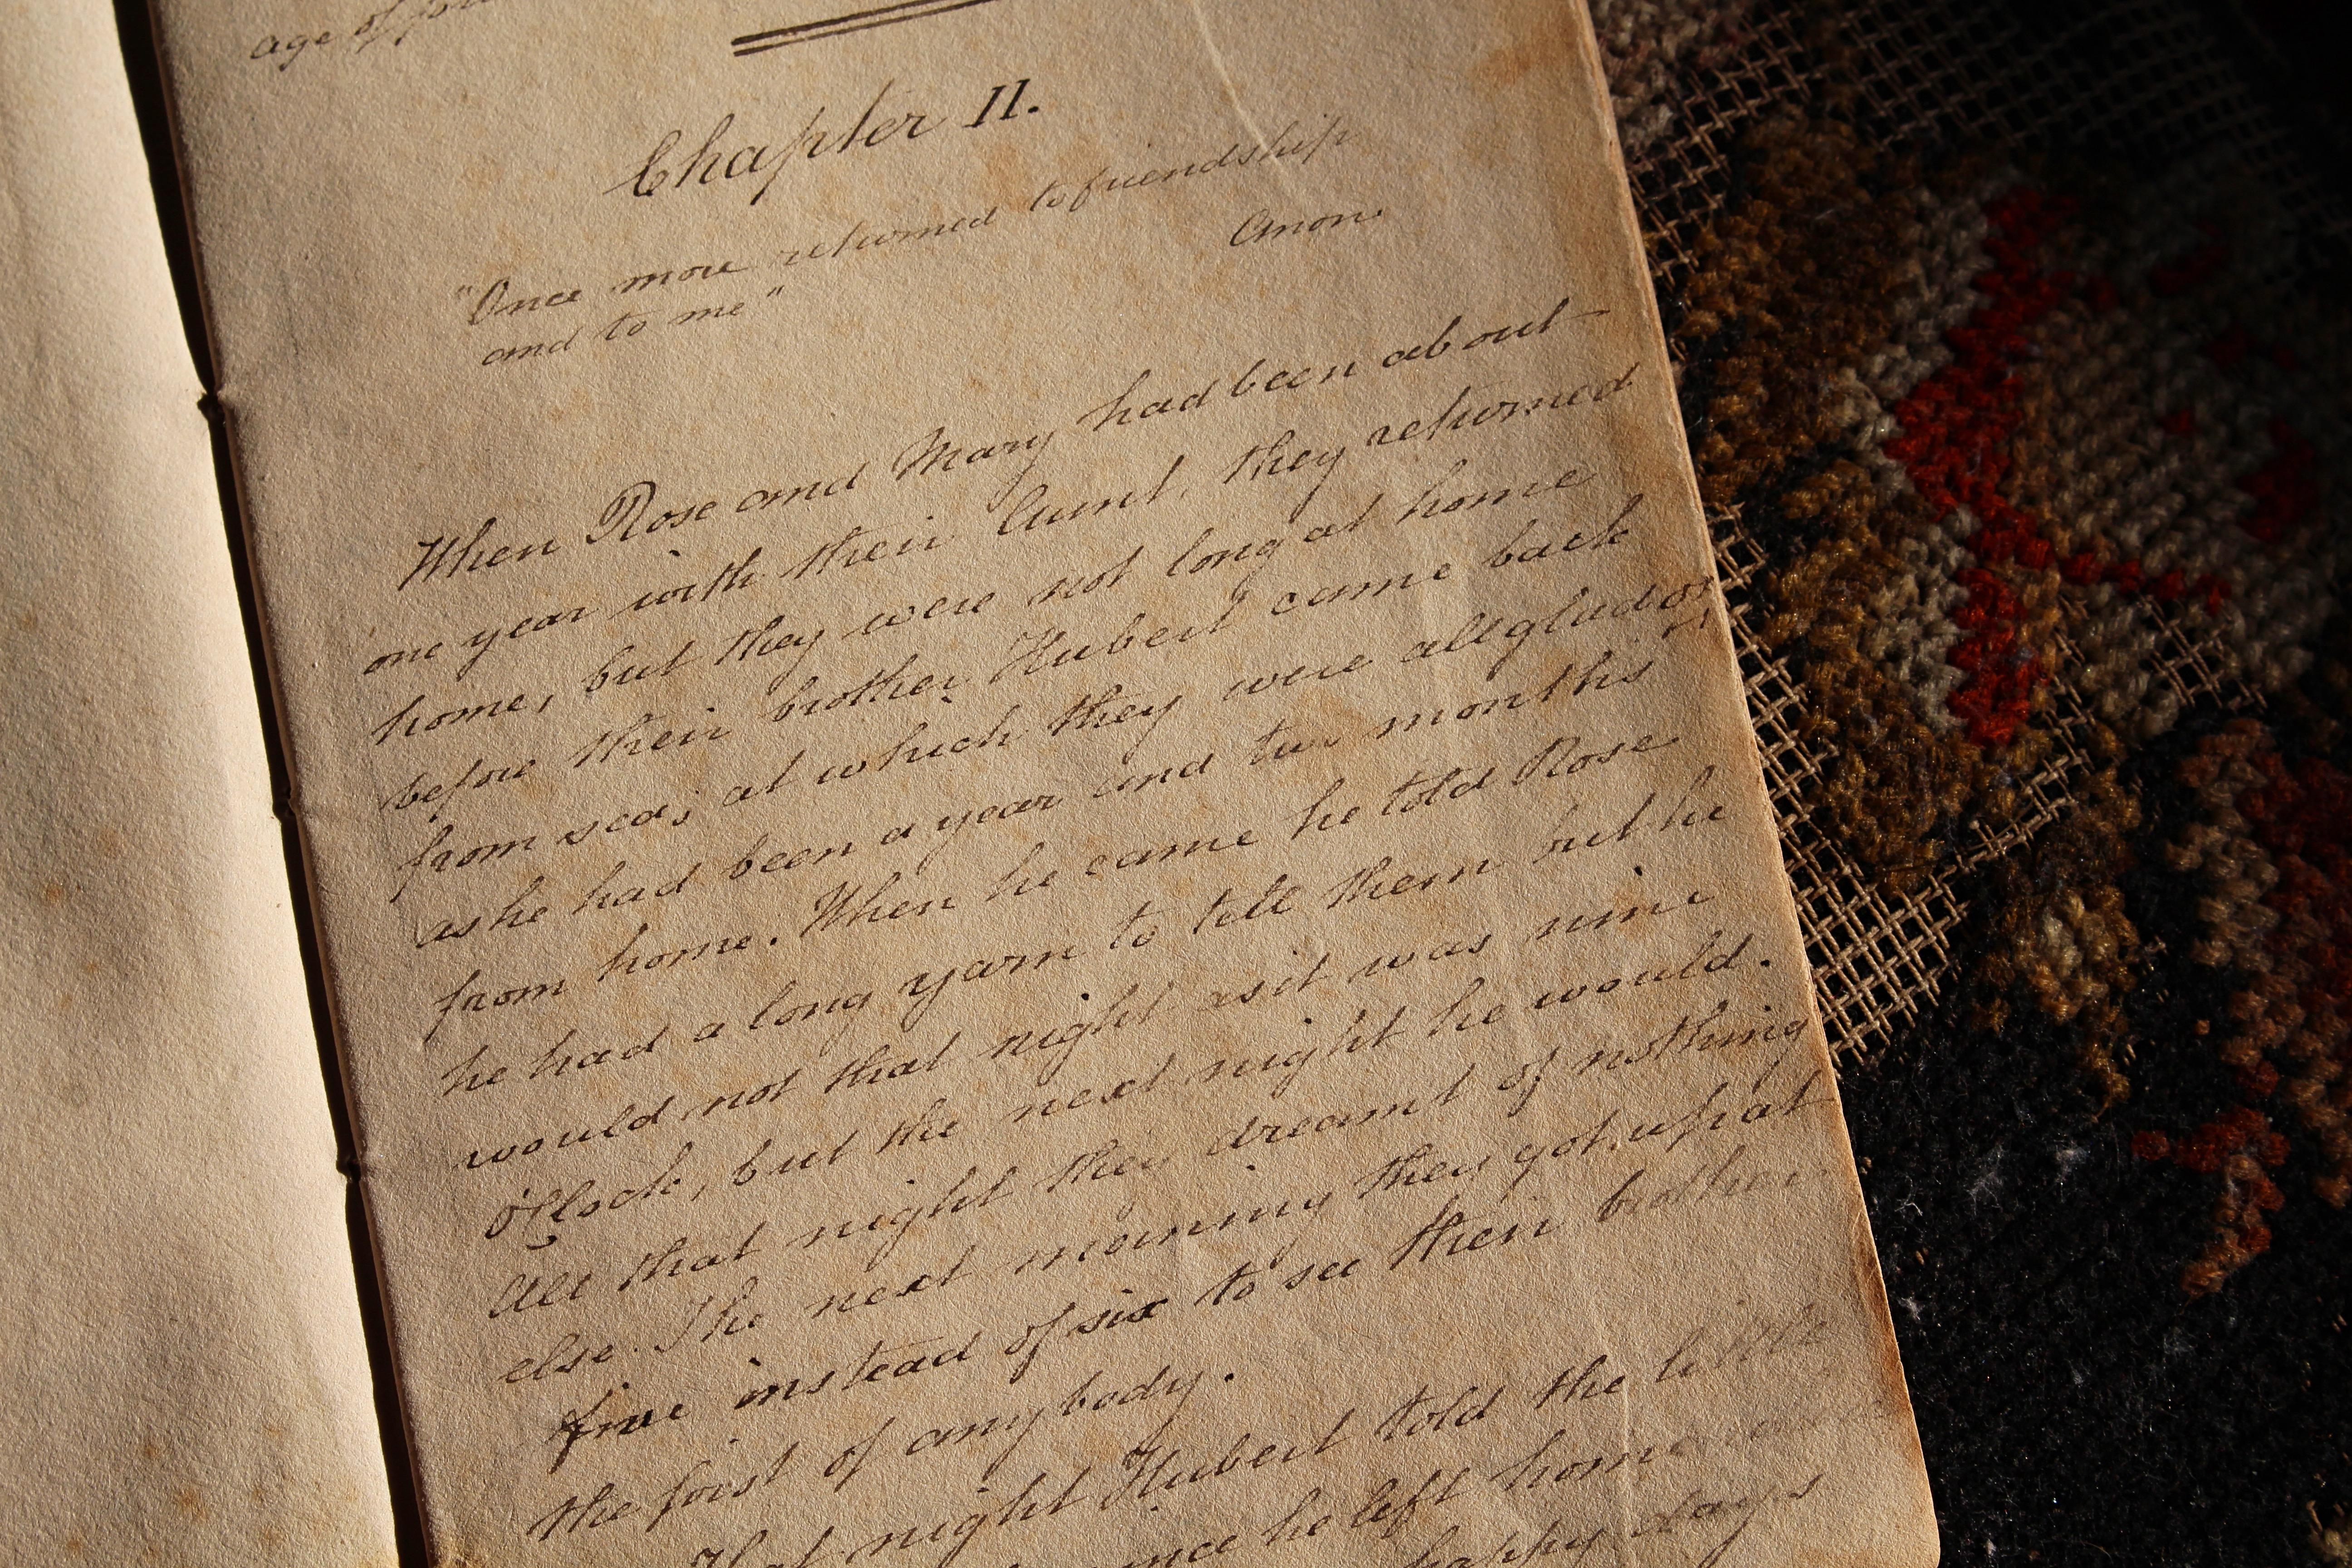 age of
Chapter II.
"Once more returned to friendship
and to me"
Anon.
When Rose and Mary had been about
one year with their Aunt, they returned
home, but they were not long at home
before their brother Hubert came back
from sea; at which they were all glad
as he had been a year and two months
from home. When he came he told Rose
he had a long yarn to tell them but he
would not that night as it was nine
o'Clock, but the next night he would.
All that night they dreamt of nothing
else. The next morning they got up at
five instead of six to see their brother
the first of anybody.
That night Hubert told the little
he left home
happy days